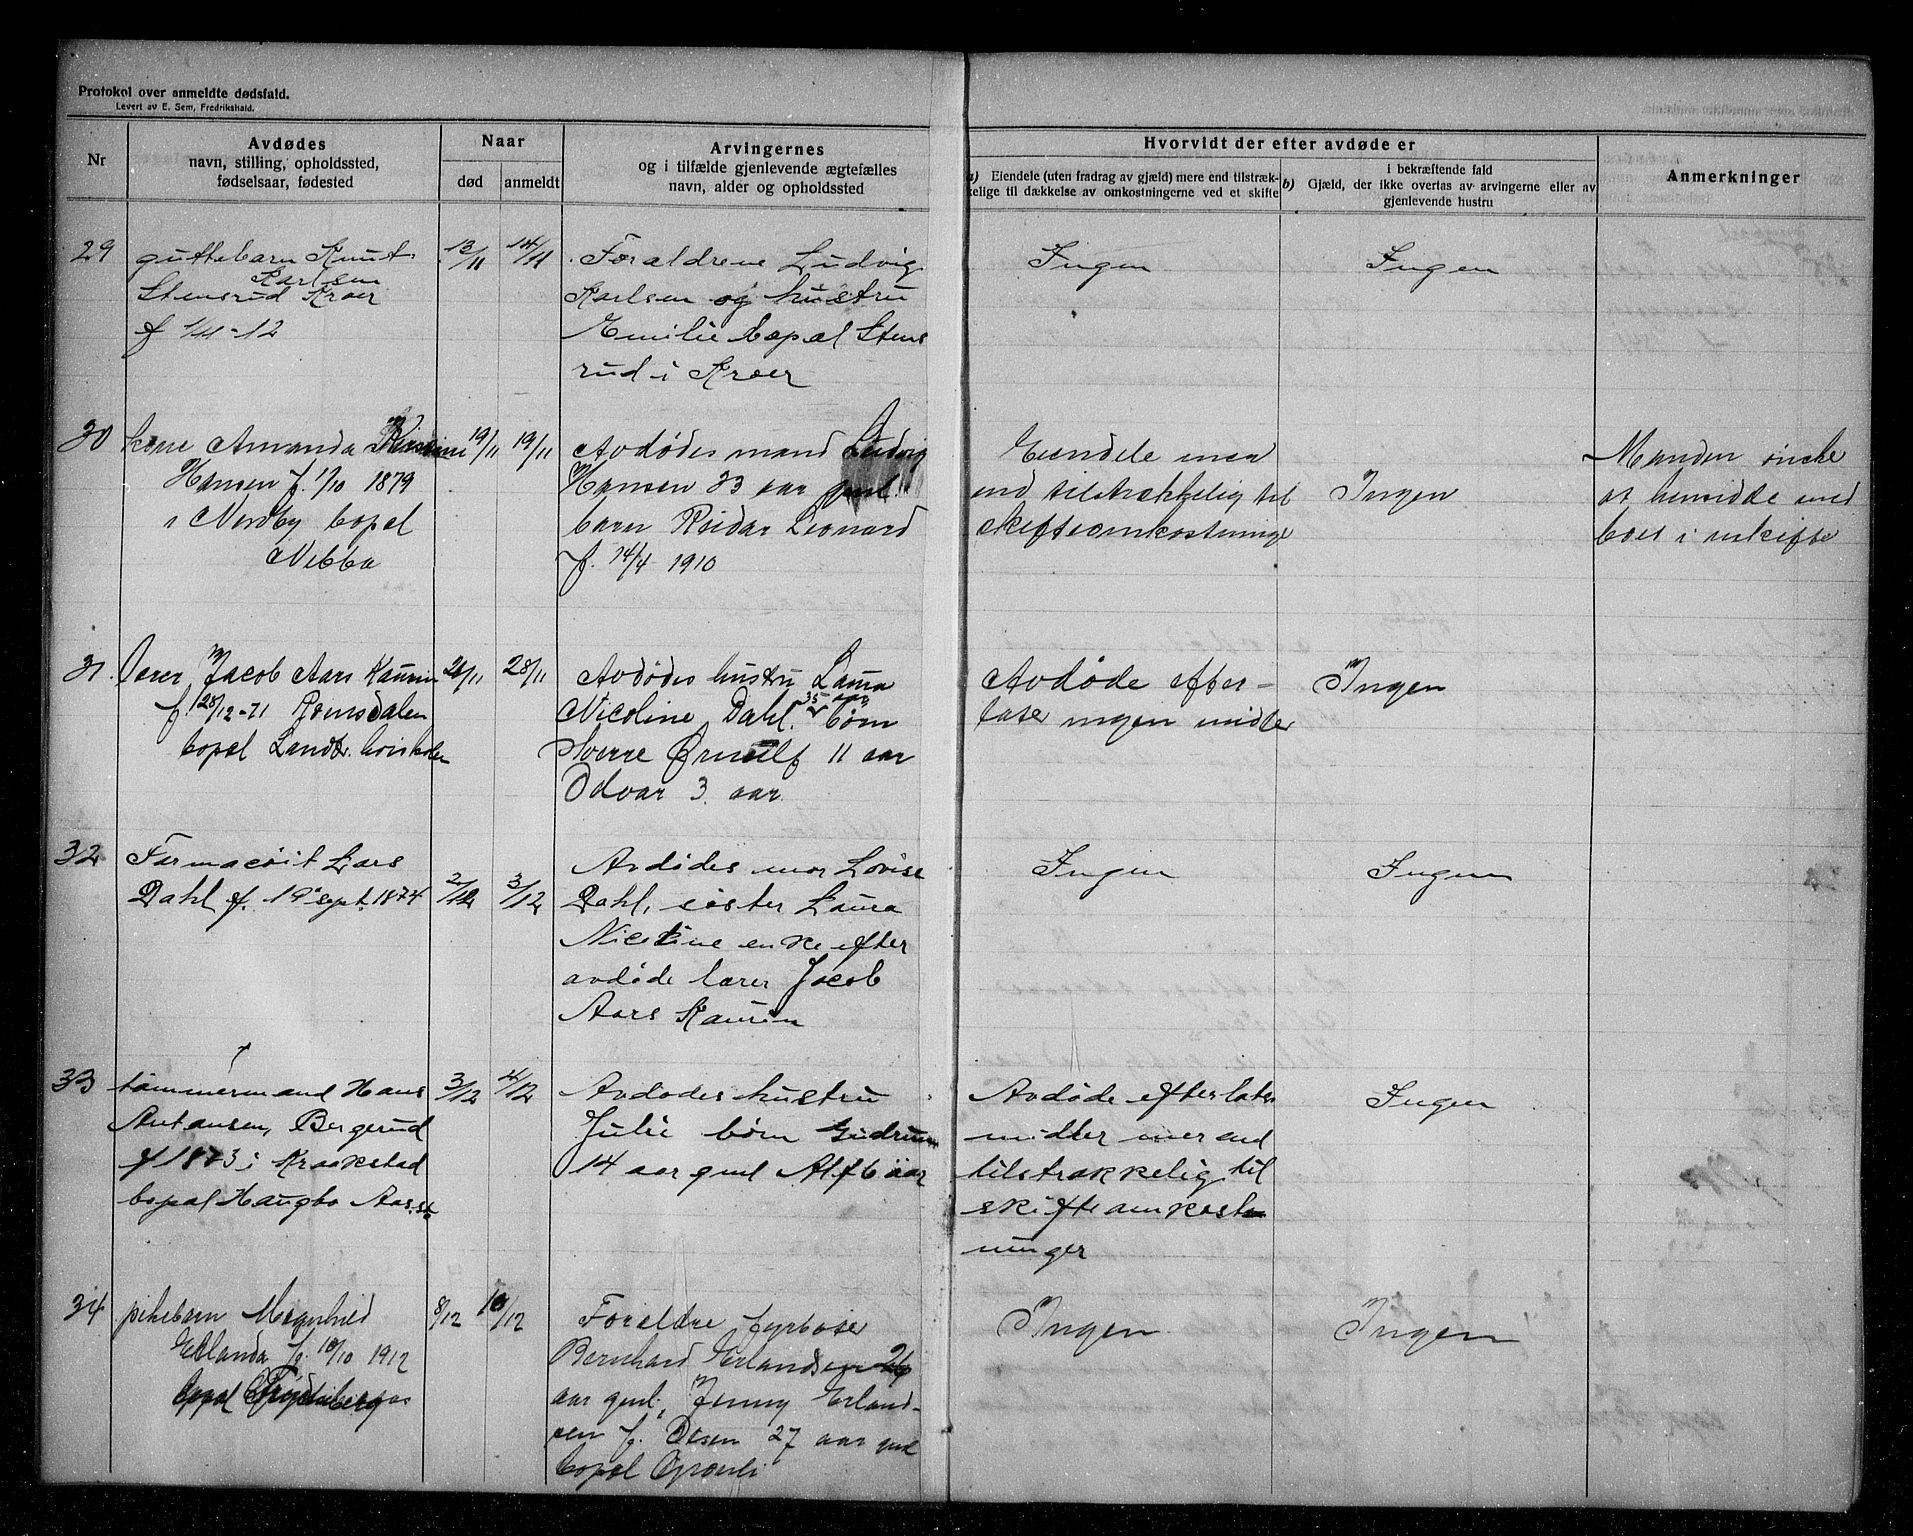 Protokol over anmeldte dødsfald.
Levert av E. Sem, Fredrikshald.
Nr
Avdødes
navn, stilling, opholdssted,
fødselsaar, fødested
Naar
død
anmeldt
Arvingernes
og i tilfælde gjenlevende ægtefælles
navn, alder og opholdssted
Hvorvidt der efter avdøde er
a) Eiendele (uten fradrag av gjæld) mere end tilstræk-
kelige til dækkelse av omkostningerne ved et skifte
i bekræftende fald
b) Gjæld, der ikke overtas av arvingerne eller av
gjenlevende hustru
Anmerkninger
29
guttebarn Knut
Karlsen
Stensrud Kroer
f 1/11-12
13/11
14/11
Forældrene Ludvig
Karlsen og hustru
Emilie bopæl Stens
rud i Kroer
Ingen
Ingen
30
kone Amanda
Hansen f. 1/10 1879
i Nordby bopel
Nebba
19/11
19/11
Avdødes mand Ludvig
Hansen 33 aar gml.
barn Reidar Leonard
f. 14/4 1910
Eiendele mer
end tilstrækkelig til
skifteomkostninge
Ingen
Manden ønske
at hensidde med
boet i uskifte
31.
Lærer Jacob Aars Kaurin
f. 28/12-71 Romsdalen
bopæl Landbr. høiskolen
28/11
Avdødes hustru Laura
Nicoline Dahl. 35 aar børn
Sverre Ørnulf 11 aar
Odvar 3. aar
Avdøde efter-
later ingen midler
Ingen
32
Farmacøit Lars
Dahl f. 19 sept. 1874
2/12
3/12
Avdødes mor Lovise
Dahl, søster Laura
Nicoline enke efter
avdøde lærer Jacob
Aars Kaurin
Ingen
Ingen
33
tømmermand Hans
Antonsen, Bergerud
f 1873 i Kraakstad
bopæl Haugbo Aas st
3/12
4/12
Avdødes hustru
Julie børn Gudrun
14 aar gml Alf 6 aar
Avdøde efterlater
midler mer end
tilstrækkelig til
skifteomkost-
ninger
Ingen
34
pikebarn Magnhild
Erlanda f. 10/10 1912
bopæl
8/12
10/12
Forældre fyrbøter
Bernhard Erlandsen 26
aar gml, Jenny Erland-
sen f. Olsen 27 aar gml
bopæl
Ingen
Ingen